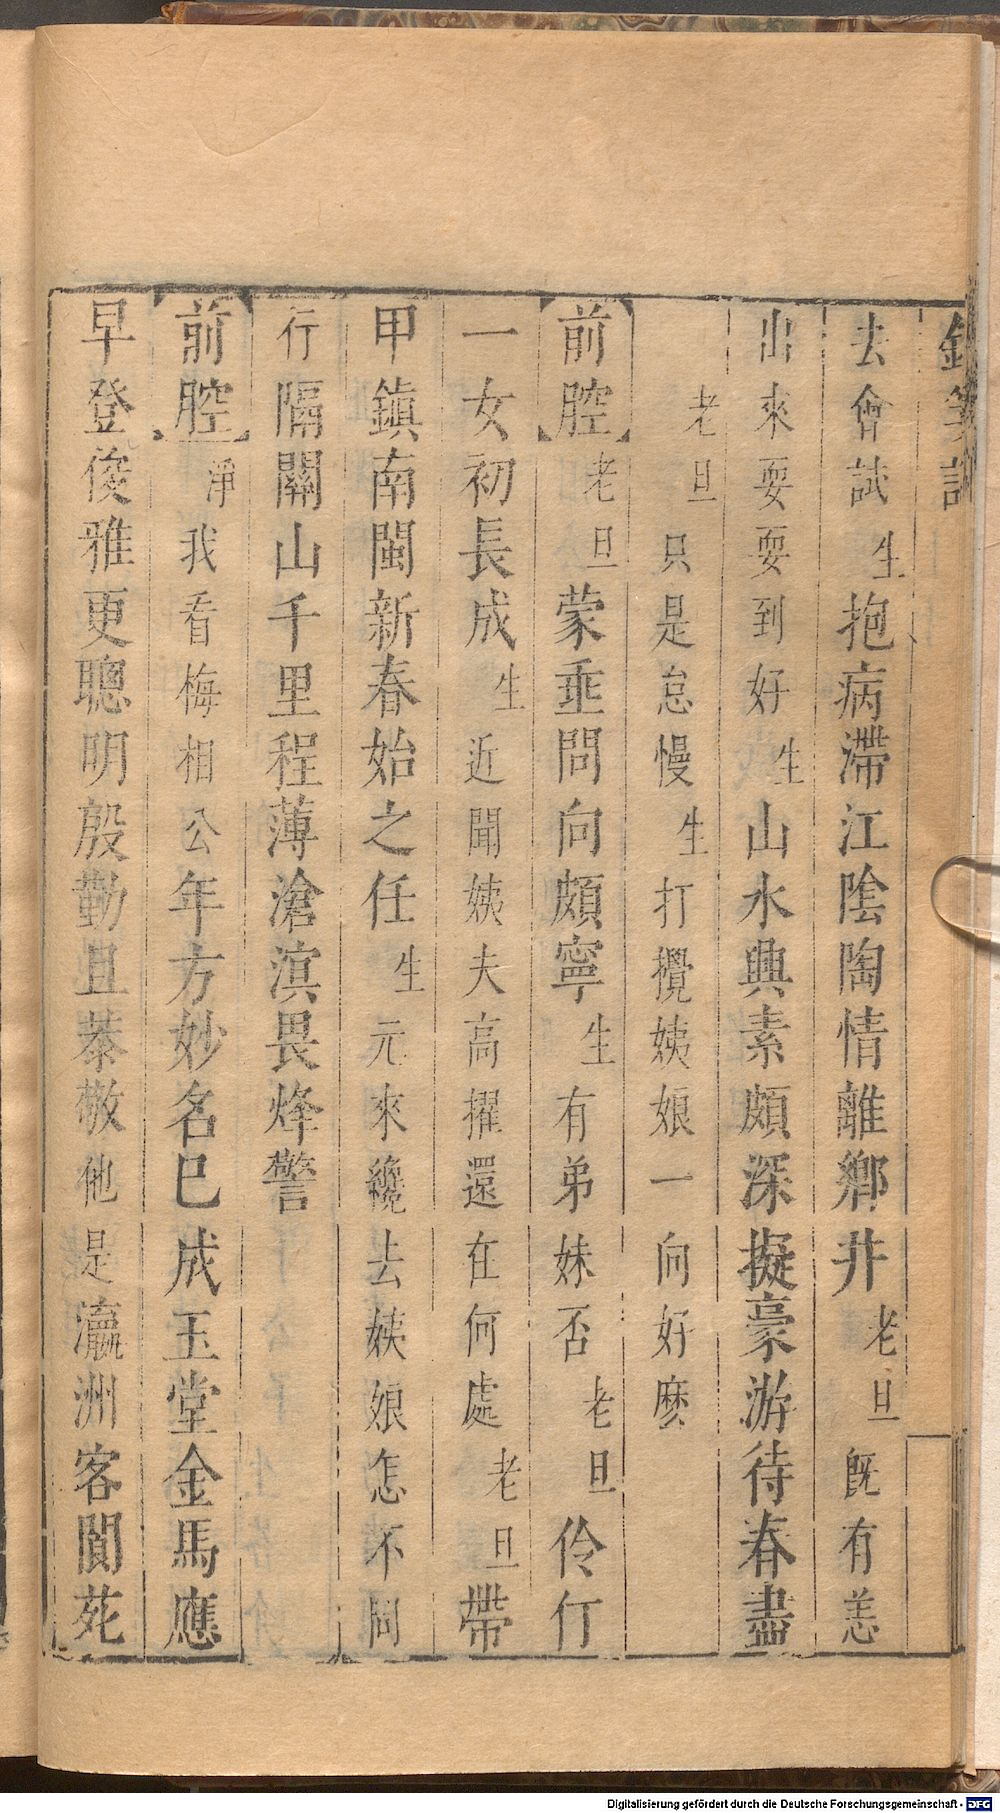 去會試生抱病滯江陰陶情離鄉井老旦既有恙
出來耍耍到好生山水興素頗深擬豪游待春盡
老旦只是怠慢生打攪姨娘一向好麽
前腔老旦蒙垂問向頗寧生有弟妹否老旦伶仃
一女初長成生近聞姨夫高擢還在何處老旦帶
甲鎮南閩新春始之任生元來纔去姨娘怎不同
行隔關山千里程薄滄溟畏烽警
前腔淨我看梅相公年方妙名已成玉堂金馬應
早登俊雅更聰明殷勤且恭敬他是瀛洲客閬苑
Digitalisierung gefördert durch die Deutsche Forschungsgemeinschaft - DFG